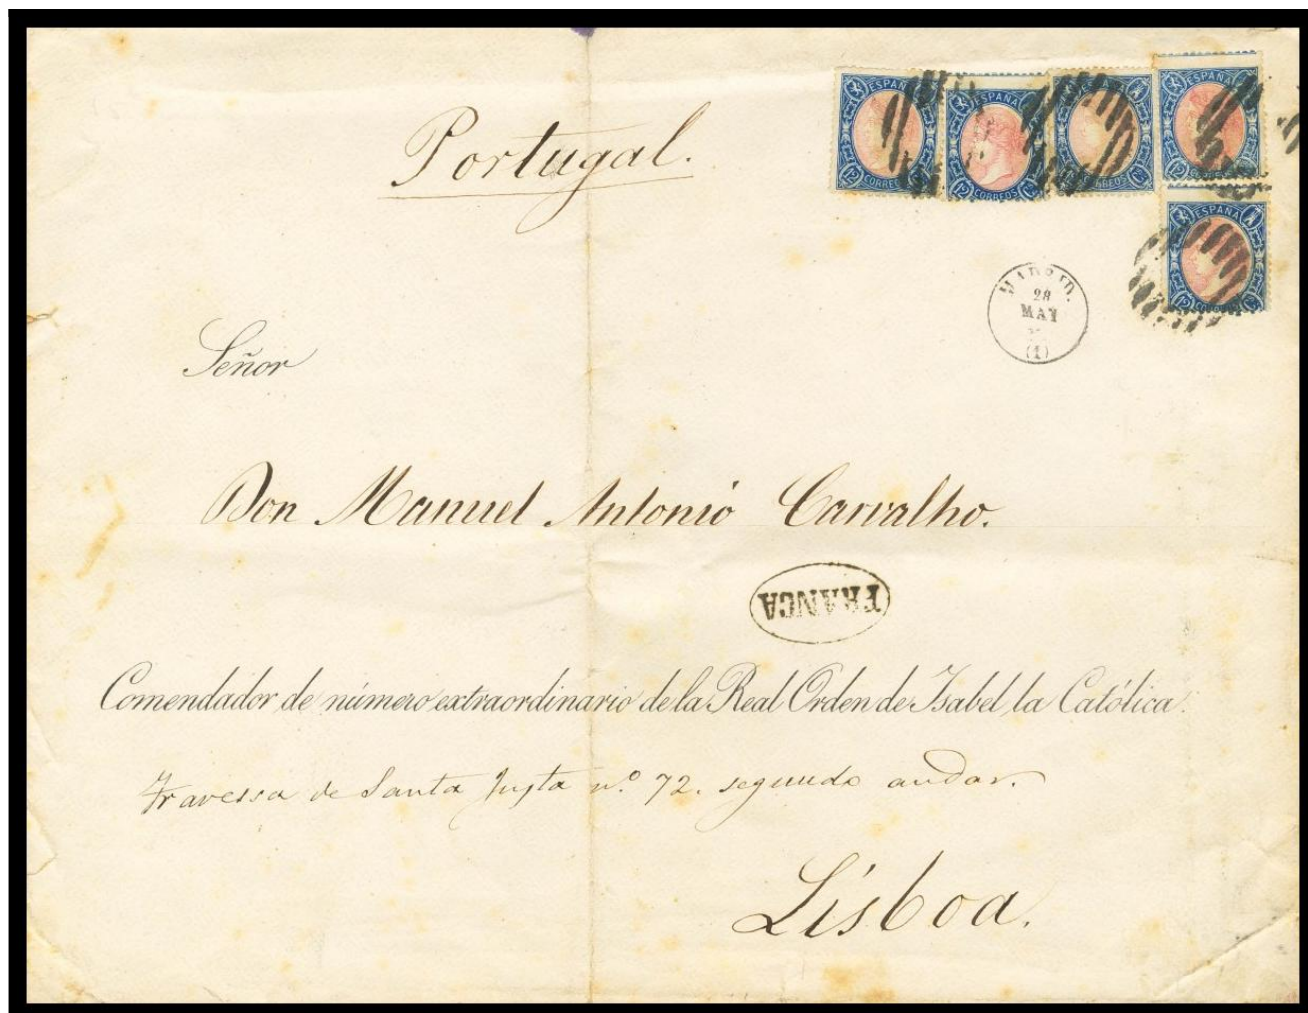 Portugal.
ESPAÑA
12 CORREOS Cs
ESPAÑA
12 CORREOS Cs
ESPAÑA
12 CORREOS Cs
ESPAÑA
12 CORREOS Cs
ESPAÑA
12 CORREOS Cs
MADRID.
28
MAY
(1)
Señor
Don Manuel Antonió Carvalho.
FRANCA
Comendador de número extraordinario de la Real Orden de Isabel la Católica.
Travessa de Santa Justa nº 72. segundo andar.
Lisboa.